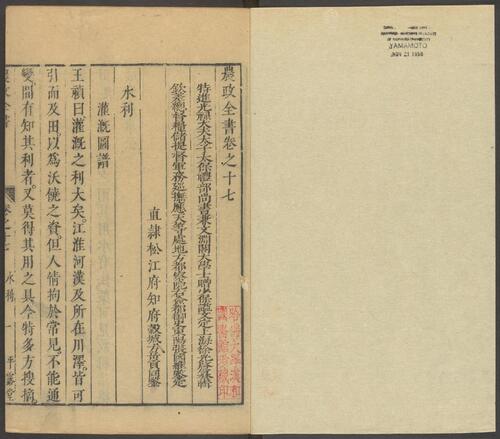 農政全書卷之十七
特進光祿大夫太子太保禮部尚書兼文淵閣大學士贈少保謚文定上海徐光啓纂輯
欽差總督糧儲提督軍務巡撫應天等處地方都察院右僉都御史東陽張國維鑒定
直隸松江府知府穀城方岳貢同鑒
水利
灌溉圖譜
王禎曰灌溉之利大矣江淮河漢及所在川澤皆可
引而及田以為沃饒之資但人情拘於常見不能通
變間有知其利者又莫得其用之具今特多方搜摘
農政全書
卷之十七 水利 一 平露堂
YAMAMOTO